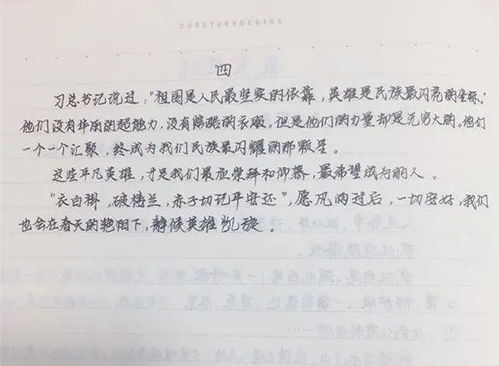 OURSTORYBEGINS
四
习总书记说过:"祖国是人民最坚实的依靠,英雄是民族最闪亮的坐标。"
他们没有华丽的超能力,没有酷酷的衣服,但是他们的力量却是无穷大的。他们
一个一个汇聚,终成为我们民族最闪耀的那颗星。
这些平凡英雄,才是我们最应崇拜和仰慕,最希望成为的人。
"衣白褂,破楼兰,赤子切记平安还",愿风雨过后,一切安好,我们
也会在春天的艳阳下,静候英雄凯旋。